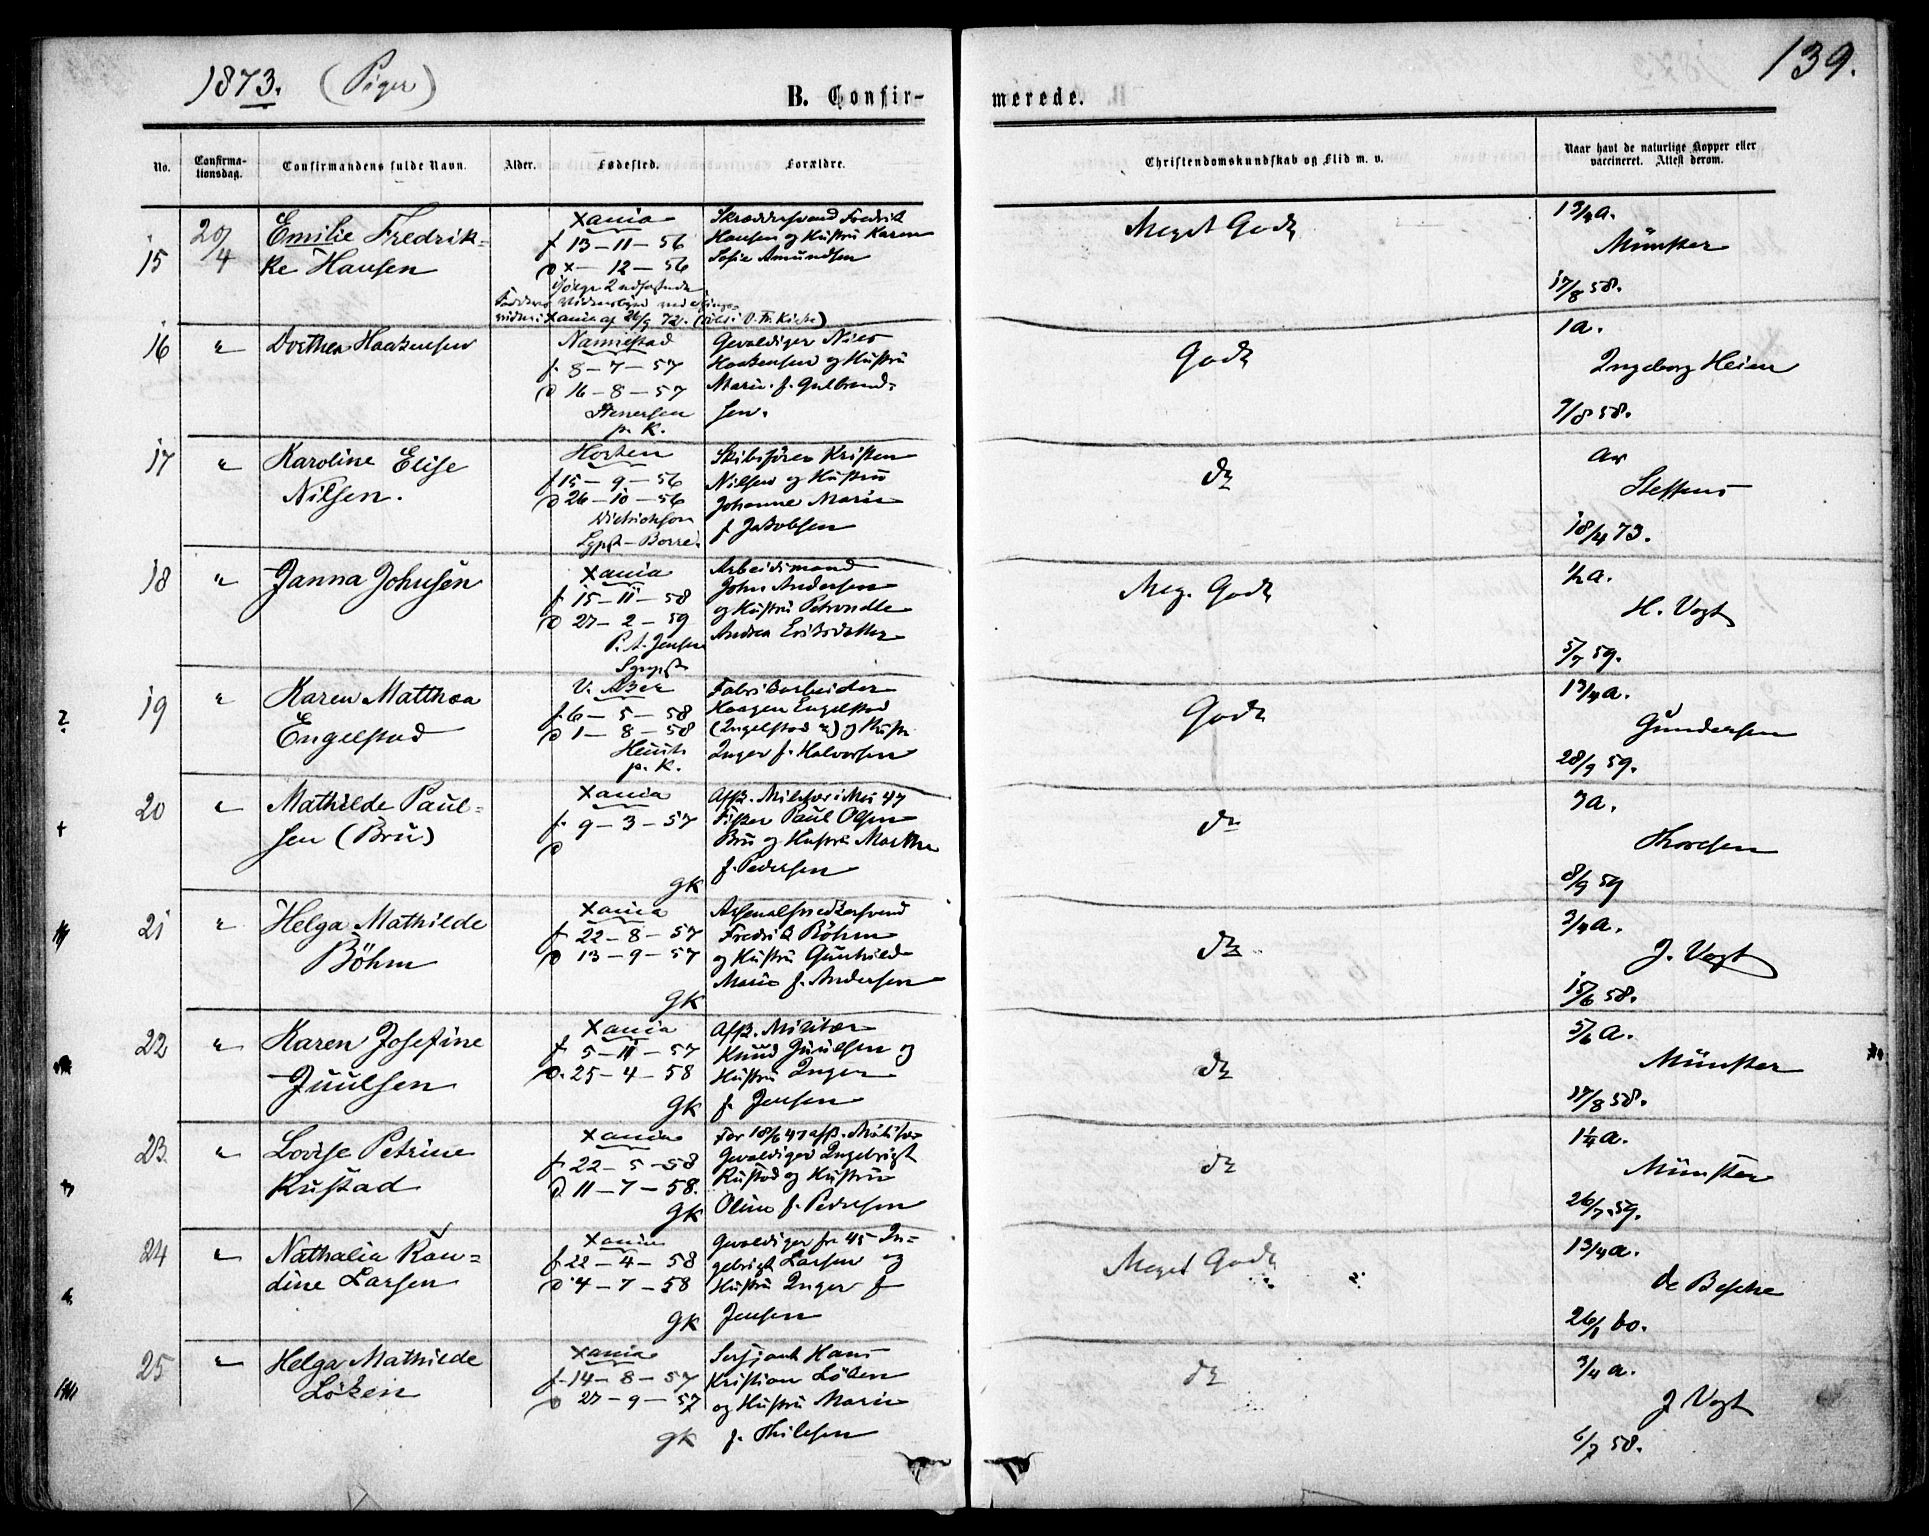 1873. (Piger)
139.
B. Confir-
merede.
No.
Confirma-
tionsdag.
Confirmandens fulde Navn.
Alder.
Fødested.
Forældre.
Christendomskundskab og Flid m. v.
Naar havt de naturlige Kopper eller
vaccineret. Attest derom.
15
20/4
Emilie Fredrik-
ke Hansen
Xania
f 13-11-56
D x-12-56
Skræddersvend Fredrik
Hansen og Hustru Karen
Sofie Amundsen
Meget Godt
1 3/4 a.
Münster
17/8 58.
16
"
Dorthea Haakensen
Nannestad
f. 8-7-57
D 16-8-57
Stenersen
p. K.
Gevaldiger Nils
Haakensen og Hustru
Marie f. Gulbrand-
sen.
Godt
1 a.
Ingeborg Heien
7/8 58.
17
"
Karoline Elise
Nilsen.
Horten
f 15-9-56
D 26-10-56
Dietrichson
Sgpst-Borre.
Skibsfører Kristen
Nilsen og Hustru
Johanne Marie
f. Jakobsen
do
ar
Steffens
18/4 73.
18
"
Janna Johnsen
Xania
f 15-11-58
D 27-2-59
P. A. Jensen
Sgpst
Arbeidsmand
John Andersen
og Hustru Petronelle
Andrea Eriksdatter
Meg. Godt
1/2 a.
H. Vogt
5/7 59.
19
"
Karen Mathea
Engelstad
V. Aker
f 6-5-58
D 1-8-58
p. K.
Fabrikarbeider
Haagen Engelstad
(Ingelstad) og Hustr
Inger f. Halvorsen
Godt
1 3/4 a.
Gundersen
28/9 59.
20
"
Mathilde Paul-
sen (Bru)
Xania
f. 9-3-57
D
GK
Afsk. Militær i No 47
Fisker Paul Olsen
Bru og Hustru Marthe
f. Pedersen
do
3 a.
Thoresen
8/9 59
21
"
Helga Mathilde
Böhm
Xania
f 22-8-57
D 13-9-57
GK
Arsenalsnedkersvend
Fredrik Böhm
og Hustru Gunhilde
Marie f. Andersen
do
3/4 a.
J. Vogt
15/6 58.
22
"
Karen Josefine
Juulsen
Xania
f 5-11-57
D. 25-4-58
GK
Afsk. Militær
Knud Juulsen og
Hustru Inger
f. Jensen
do
5/6 a.
Münster
17/8 58.
23
"
Lovise Petrine
Rustad
Xania
f 22-5-58
D 11-7-58.
GK
For 18/6 47 afsk. Militær
Gevaldiger Ingebrigt
Rustad og Hustru
Oline f. Pedersen
do
1 1/4 a.
Münster
26/7 59.
24
"
Nathalia Ran-
dine Larsen
Xania
f 22-4-58
D 4-7-58
GK
Gevaldiger fra 45 In-
gebrigt Larsen og
Hustru Inger f
Jensen
Meget Godt
1 3/4 a.
de Besche
26/1 60.
25
"
Helga Mathilde
Løken
Xania
f. 14-8-57
D 27-9-57
GK
Sersjant Hans
Kristian Løken
og Hustru Marie
f. Thilesen
do
3/4 a.
J Vogt
6/7 58.